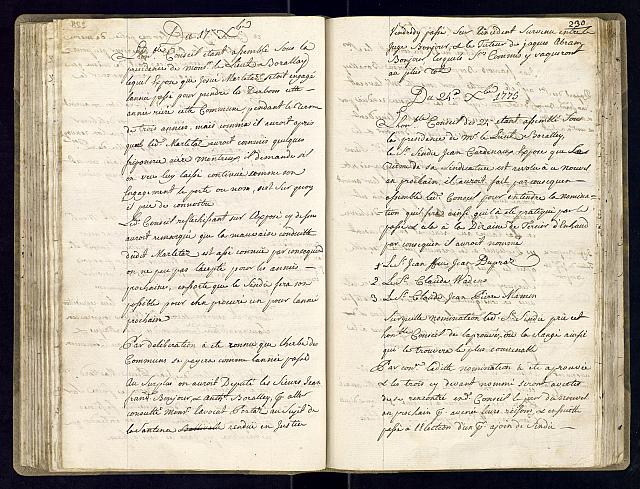 Du 17e Xbre
Conseil étant assemblé sous la
présidence de monsr le Lieut. de Boralley
lequel Expose que Josué Martitez s'etoit engagé
lannée passé pour prendre les Taubons cette
année rière cette Commune pendant le Terme
de trois années, mais comme il auroit apris
que led. Martitez auroit commis quelques
friponerie aire menterues il demande si
on veux luy laisse continué comme son
Engagement le porte ou non, est sur quoy
il prie de connoitre
Led. Conseil reflechissant sur l'Exposé cy dessus
auroit remarqué que la mauvaise conduitte
dudit Martitez est assé connue par consequend
on ne peu pas l'accepté pour les années
prochaine, ensorte que le Sindic fera son
possible pour s'en procuré un pour lannée
prochain
Par deliberation a été connue que l'herbe des
Communs se payera comme lannée passé
Au surplus on auroit Deputé les Sieurs Jean
frans Bonjour, & Anth. Boralley, pr aller
consulté Monsr lavocat au Sujet de
la Santence rendüe en Justice
230
Vendredy passé sur l'incident survenu entre le
Juge Bonjour, & le Tuteur de Jaques Abram
Bonjour, lesquels Srs Commis y vaqueront
au plus tot
Du 24e Xbre 1775
L'honble Conseil du 24e etant assemblé sous
la presidence de Mr le Lieut. de Boralley,
le Sr Sindic Jean Cardinaux Expose que le
terme de sa Sindicature est revolu a nouvel
an prochain, il auroit fait par consequen
assemblé led. Conseil pour entendre la nomina-
tion qui fera ainsi qu'il à été pratiqué par le
passé & cela a la Diraine de Tercier d'enhaud
par consequen s'auroit nommé
1 Le Sr Jean ffeu Jean Dupraz
2 Le Sr Claude Wadens
3 Le Sr Claude Jean Pierre Mamin
Sur quelle nomination led. Sr Sindic prie cet
honble Conseil de laprouver, ou la changé ainsi
qu'il le trouvera le plus convenable
Par con. ladite nomination à été aprouvée
& les trois cy devant nommé seront avertis
de se rencontré en Conseil le jour du nouvel
an prochain pr avancer leurs raisons, & ensuitte
passé à l'Election d'un pr ajoin de Sindic